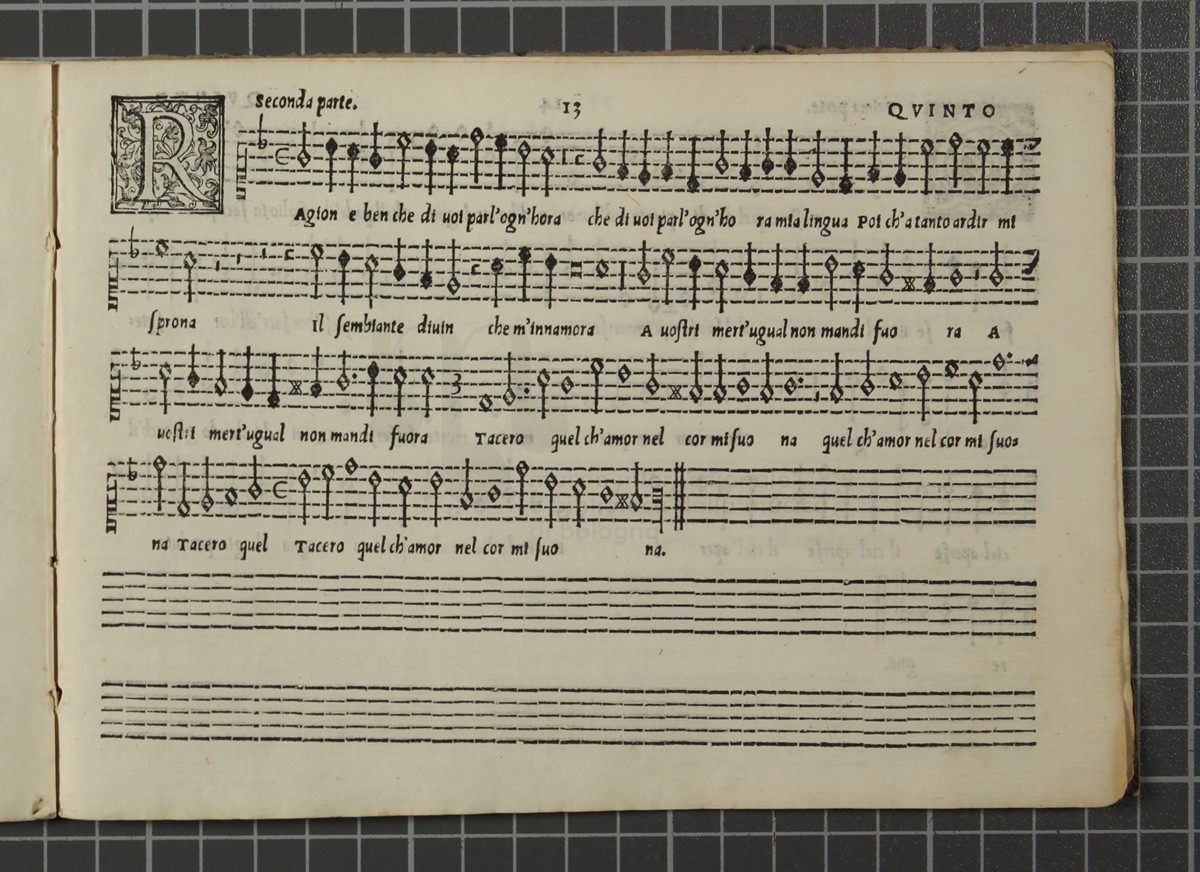 Seconda parte. 13 QVINTO
RAgion e ben che di uoi parl'ogn'hora che di uoi parl'ogn'ho ra mia lingua Poi ch'a tanto ardir mi
sprona Il sembiante diuin che m'innamora A uostri mert'ugual non mandi fuo ra A
uostri mert'ugual non mandi fuora Tacero quel ch'amor nel cor mi suo na quel ch'amor nel cor mi suo=
na Tacero quel Tacero quel ch'amor nel cor mi suo na.